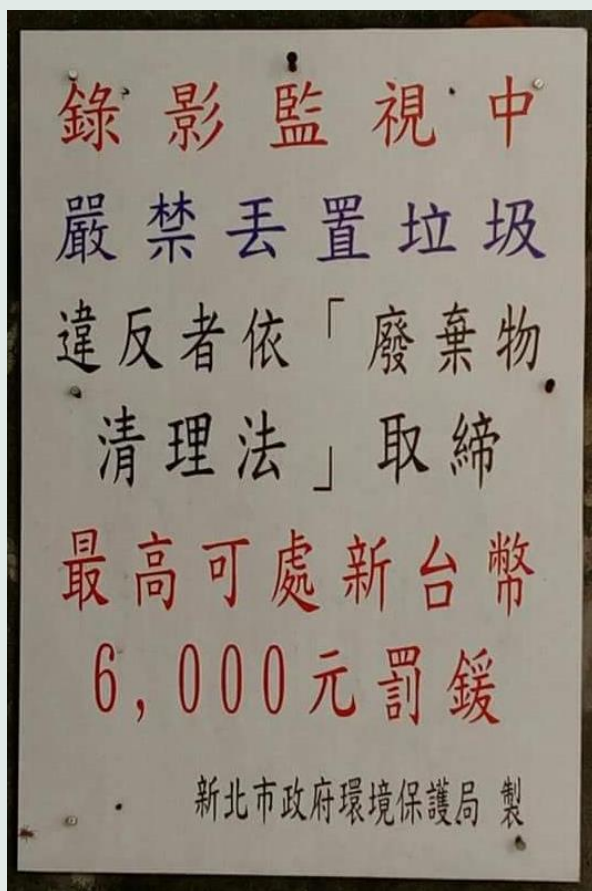 錄影監視中
嚴禁丟置垃圾
違反者依「廢棄物
清理法」取締
最高可處新台幣
6,000元罰鍰
新北市政府環境保護局 製